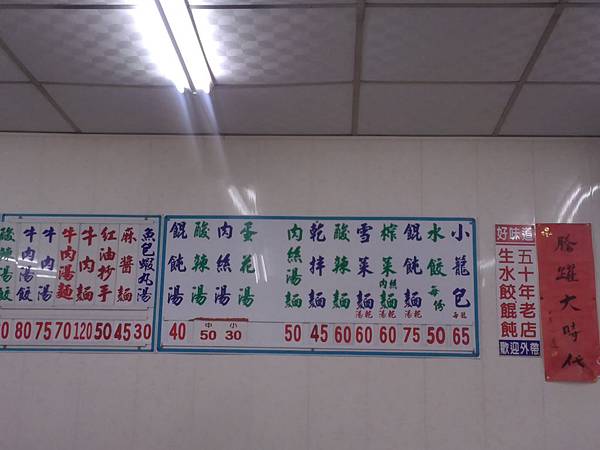 騰躍大時代
好味道
五十年老店
生水餃餛飩
歡迎外帶
小龍包 每籠 65
水餃 每份 50
餛飩麵 湯乾 75
榨菜肉絲麵 湯乾 60
雪菜麵 湯乾 60
酸辣麵 60
乾拌麵 45
肉絲湯麵 50
蛋花湯
肉絲湯
酸辣湯
小 30
中 50
餛飩湯 40
魚包蝦丸湯 30
麻醬麵 45
紅油抄手 50
牛肉麵 120
牛肉湯麵 70
牛肉湯 75
牛肉湯餃 80
酸辣湯餃